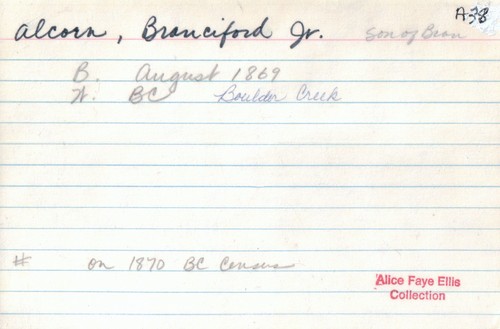 A-38
Alcorn, Branciford Jr. Son of Bran
B. August 1869
N. BC Boulder Creek
# on 1870 BC Census
Alice Faye Ellis
Collection